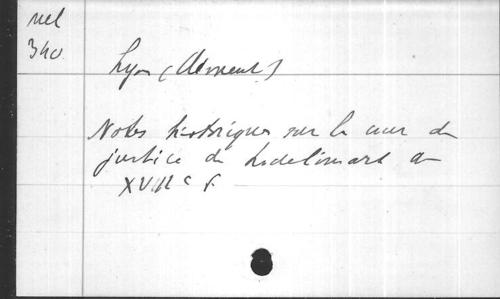 mel
340
Lyon (Clément)
Notes historiques sur la cour de
justice de au
XVIIIe s.